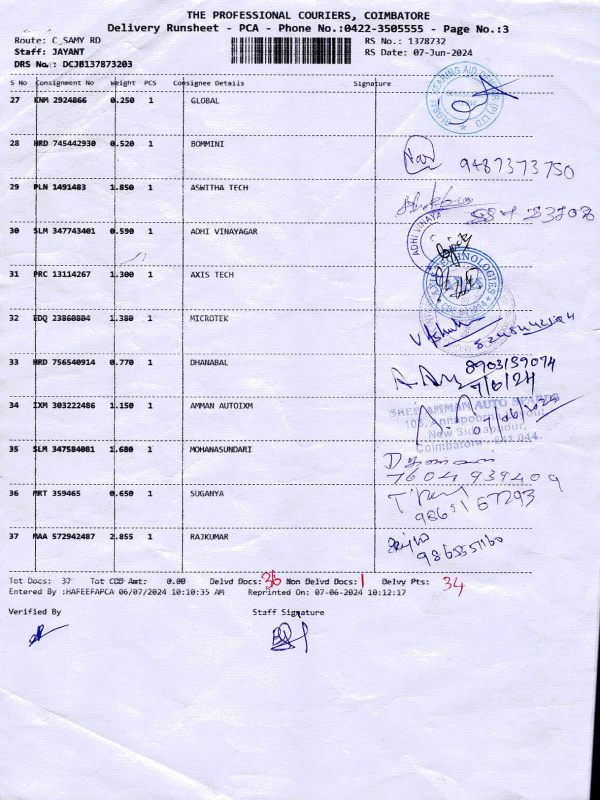 THE PROFESSIONAL COURIERS, COIMBATORE
Delivery Runsheet - PCA - Phone No.:0422-3505555 - Page No.:3
Route: C_SAMY RD RS No.: 1378732
Staff: JAYANT RS Date: 07-Jun-2024
DRS No.: DCJB137873203
S No Consignment No Weight PCS Consignee Details Signature
27 KNM 2924866 0.250 1 GLOBAL
28 HRD 745442930 0.520 1 BOMMINI
9487373750
29 PLN 1491483 1.850 1 ASWITHA TECH
30 SLM 347743401 0.590 1 ADHI VINAYAGAR
ADHI VINAYA
31 PRC 13114267 1.300 1 AXIS TECH
32 EDQ 23860804 1.380 1 MICROTEK
33 HRD 756540914 0.770 1 DHANABAL
8903159074
7/6/24
34 IXM 303222486 1.150 1 AMMAN AUTOIXM
SHED AMMAN AUTO SPARES
35 SLM 347584081 1.680 1 MOHANASUNDARI
Coimbatore - 641 044.
7604939409
36 MRT 359465 0.650 1 SUGANYA
37 MAA 572942487 2.855 1 RAJKUMAR
Tot Docs: 37 Tot COD Amt: 0.00 Delvd Docs: 36 Non Delvd Docs: 1 Delvy Pts: 34
Entered By :HAFEEFAPCA 06/07/2024 10:10:35 AM Reprinted On: 07-06-2024 10:12:17
Verified By Staff Signature